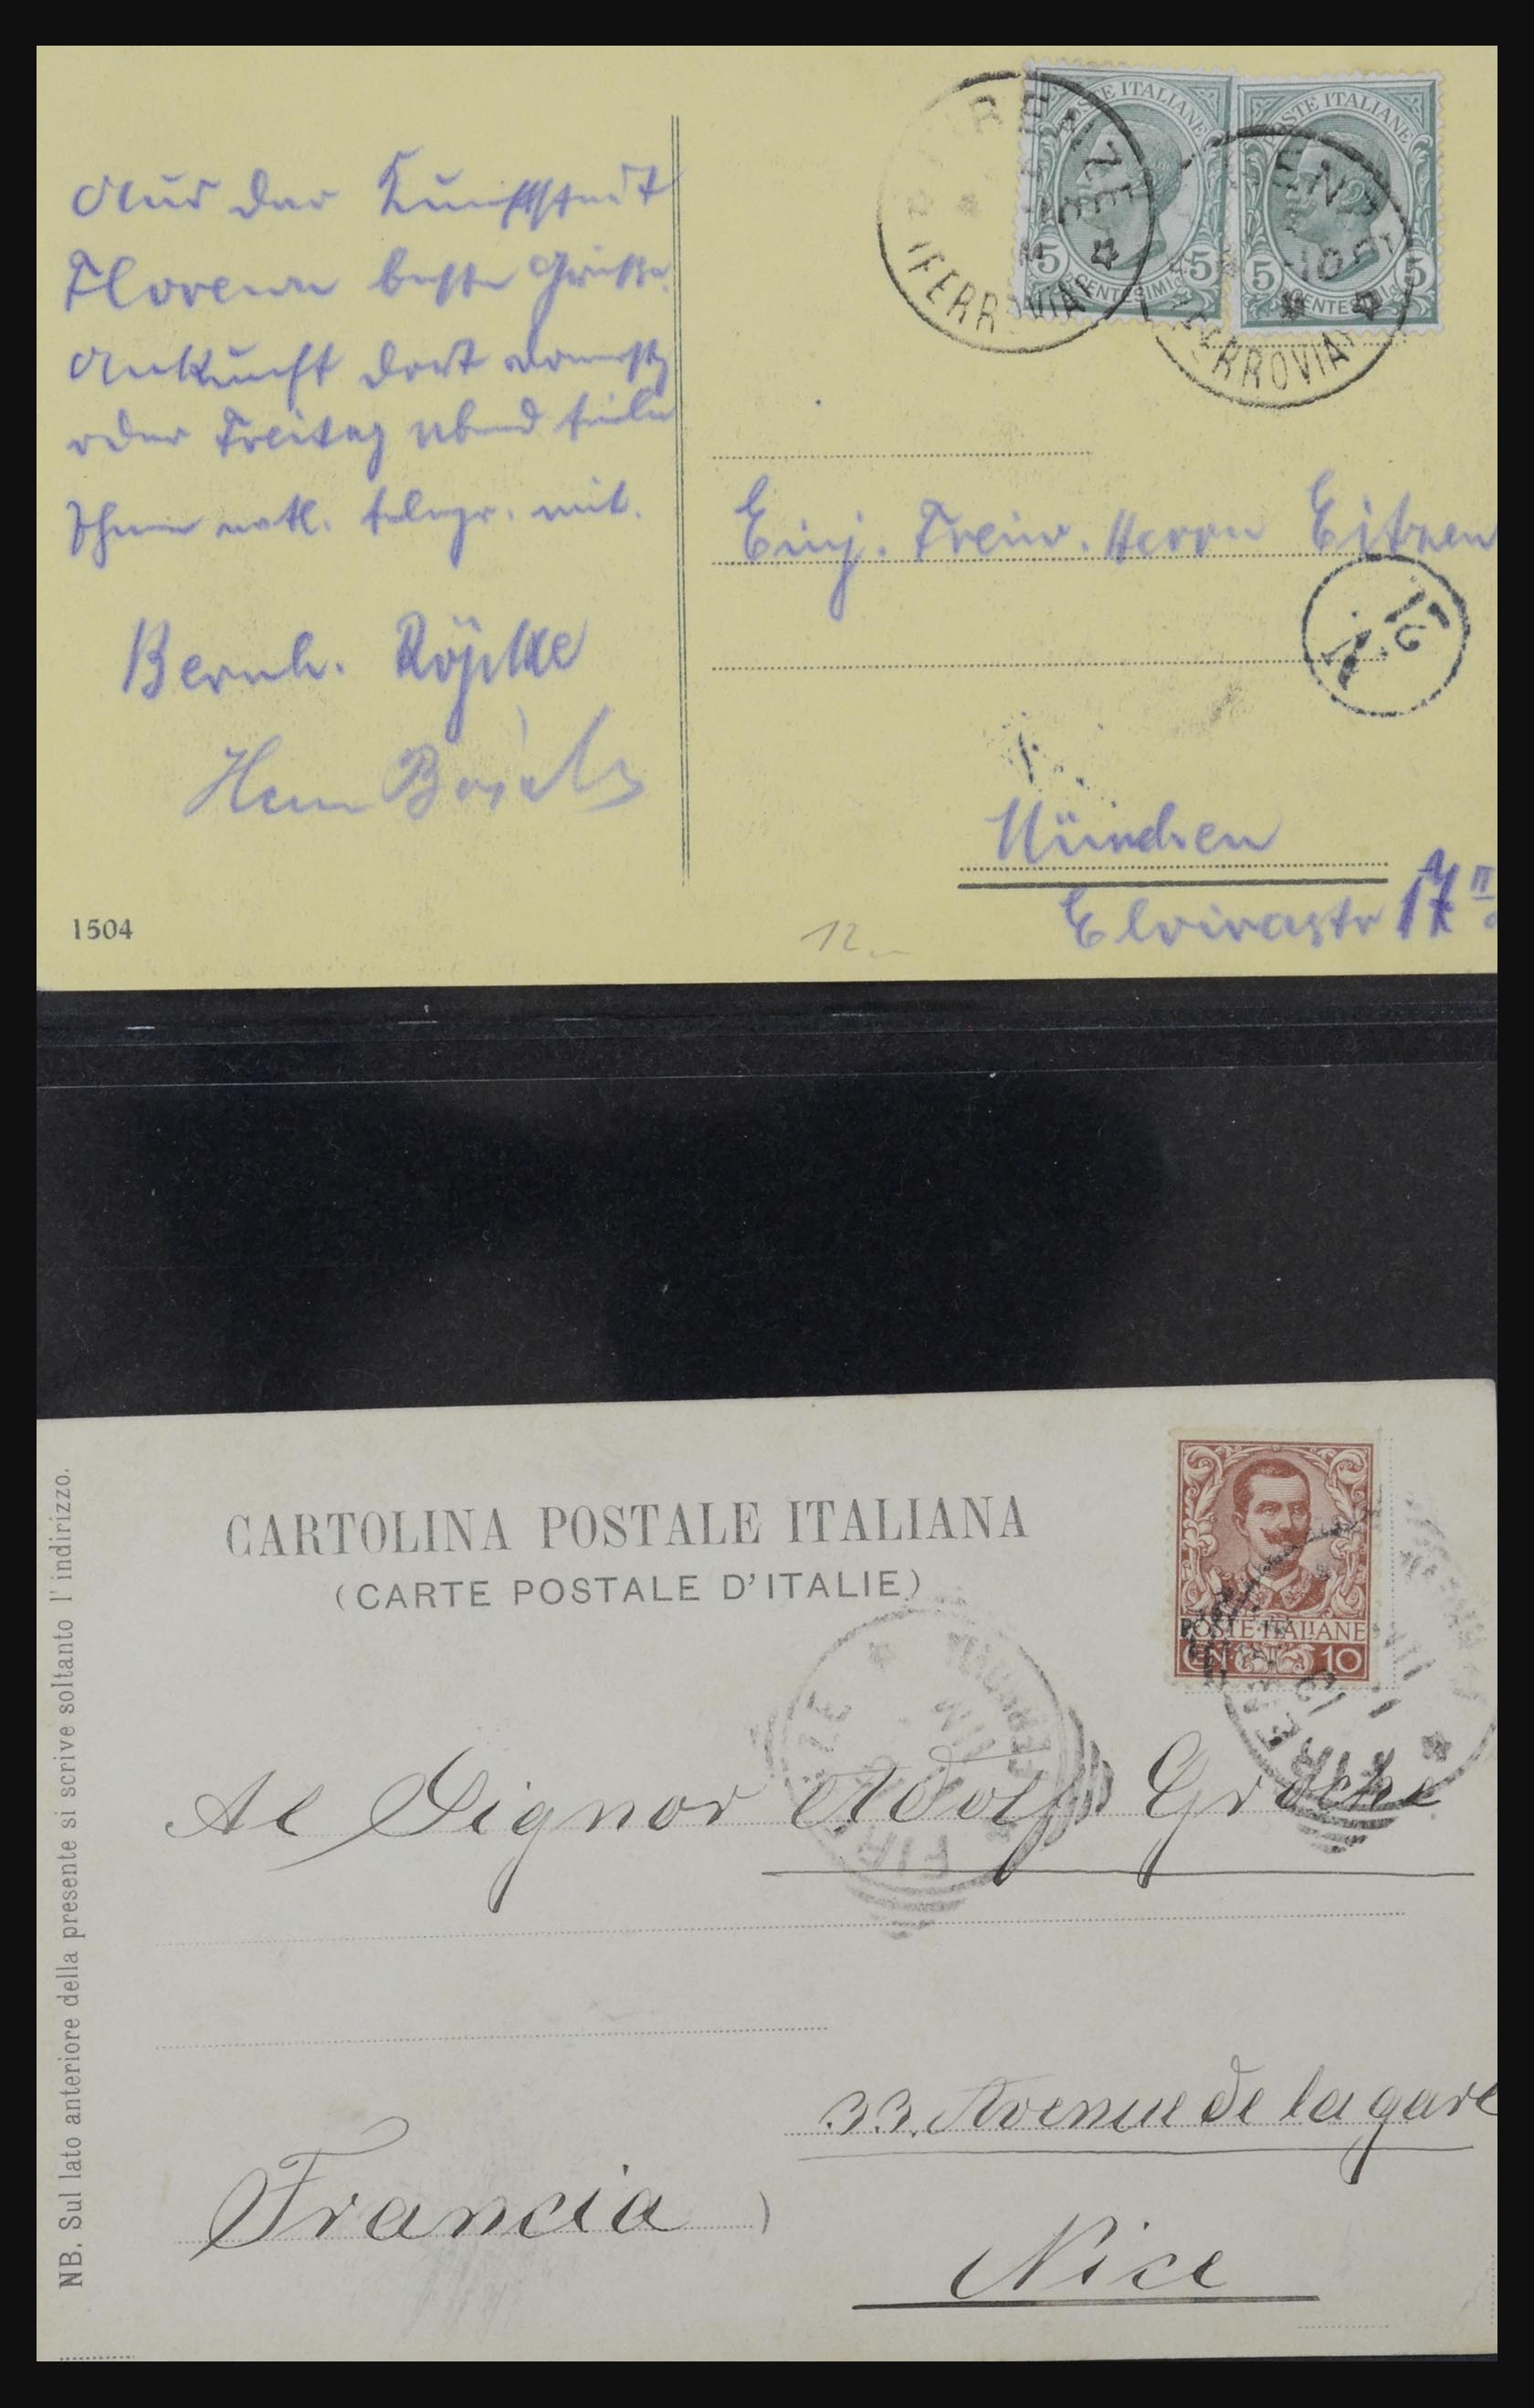 Aus der Kunststadt
Florenz beste Grüße.
Ankunft dort Donnerstg
oder Freitag abend teile
Ihnen evtl. telegr. mit.
Bernh. Röpke
Herm
1504
POSTE ITALIANE
5 CENTESIMI 5
POSTE ITALIANE
5 CENTESIMI 5
FIRENZE
(FERROVIA)
(FERROVIA)
Einj. Freiw. Herrn Eitzen
12
München
Elvirastr 17 II
12.-
CARTOLINA POSTALE ITALIANA
(CARTE POSTALE D'ITALIE)
NB. Sul lato anteriore della presente si scrive soltanto l'indirizzo.
POSTE ITALIANE
CENT. 10
FIRENZE
FERROVIA
FIRENZE
Al Signor Adolf Groche
33. Avenue de la gare
Francia
Nice